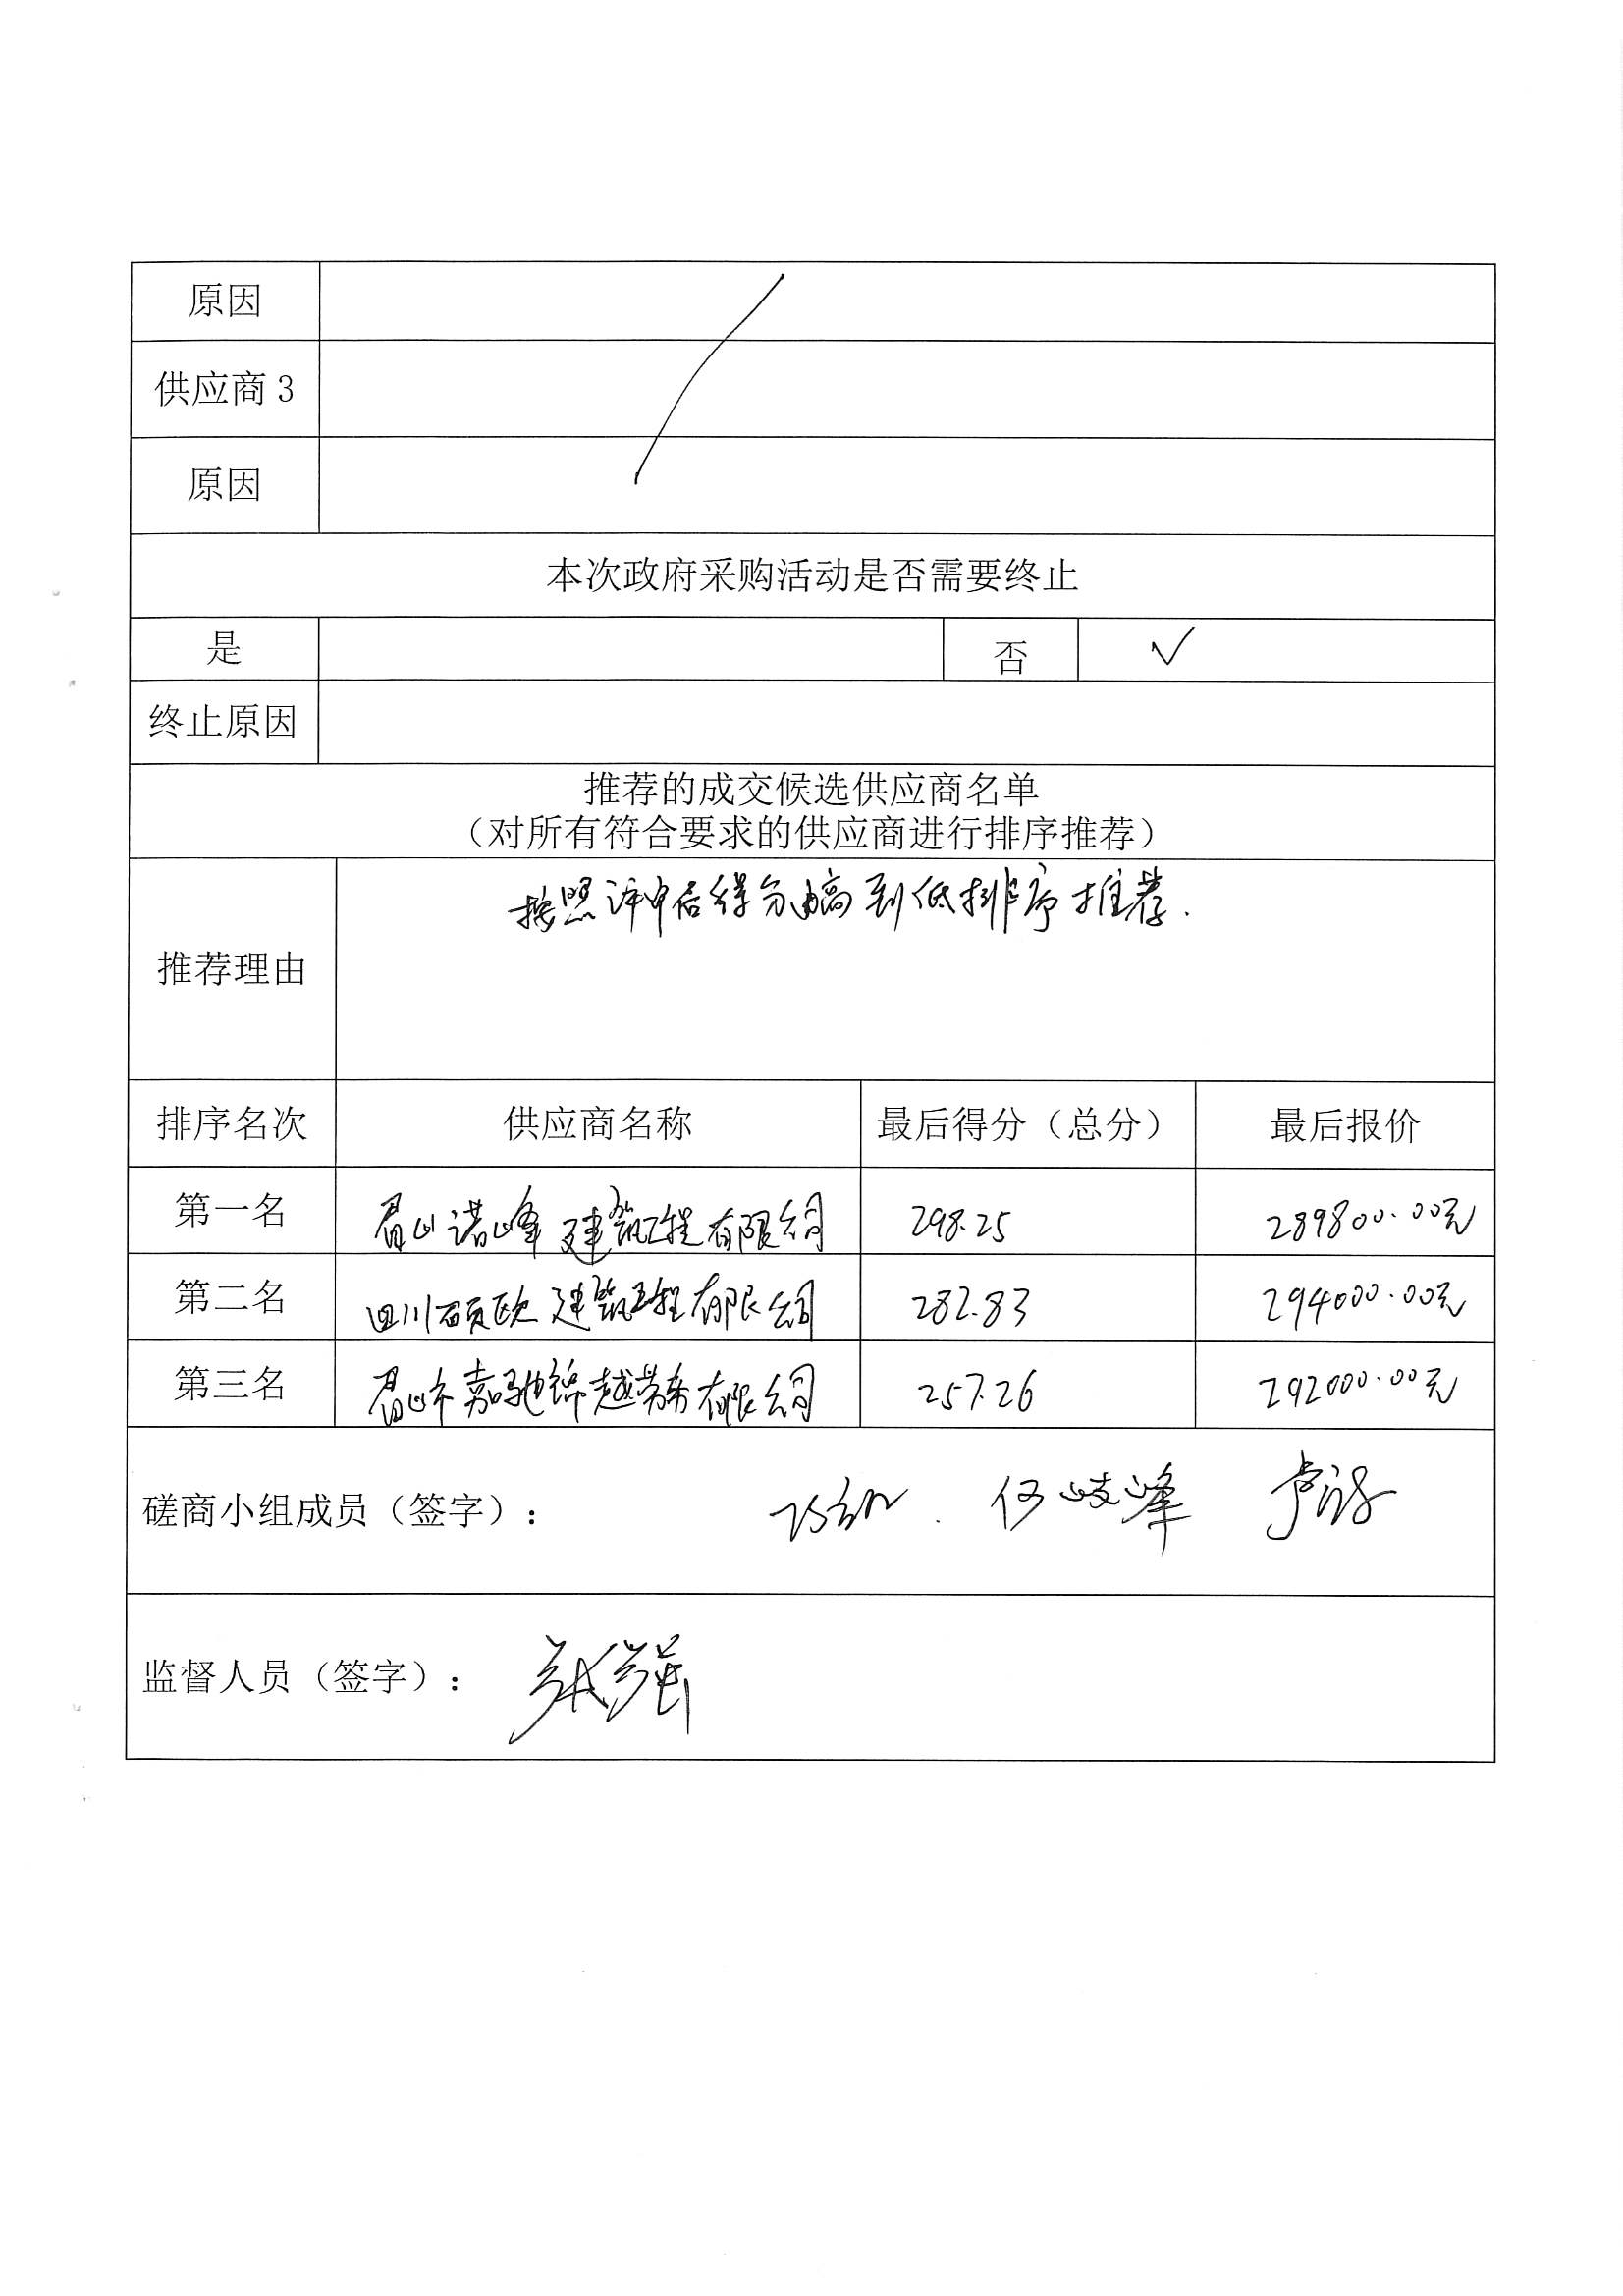 原因
供应商3
原因
本次政府采购活动是否需要终止
是 否 √
终止原因
推荐的成交候选供应商名单
（对所有符合要求的供应商进行排序推荐）
推荐理由 按照评审后得分由高到低排序推荐.
排序名次 供应商名称 最后得分（总分） 最后报价
第一名 眉山诺峰建筑工程有限公司 298.25 289800.00元
第二名 四川硕欧建筑工程有限公司 282.83 294000.00元
第三名 眉山市嘉驰锦越劳务有限公司 257.26 292000.00元
磋商小组成员（签字）： 何岐峰
监督人员（签字）：